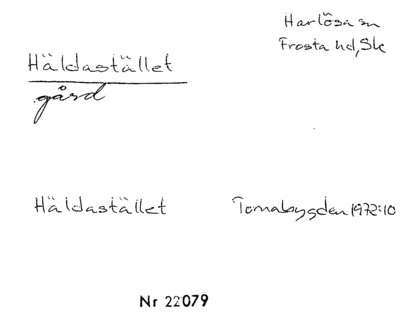 Harlösa sn
Frosta hd, Sk
Häldastället
gård
Häldastället Tornabygden 1972:10
Nr 22079